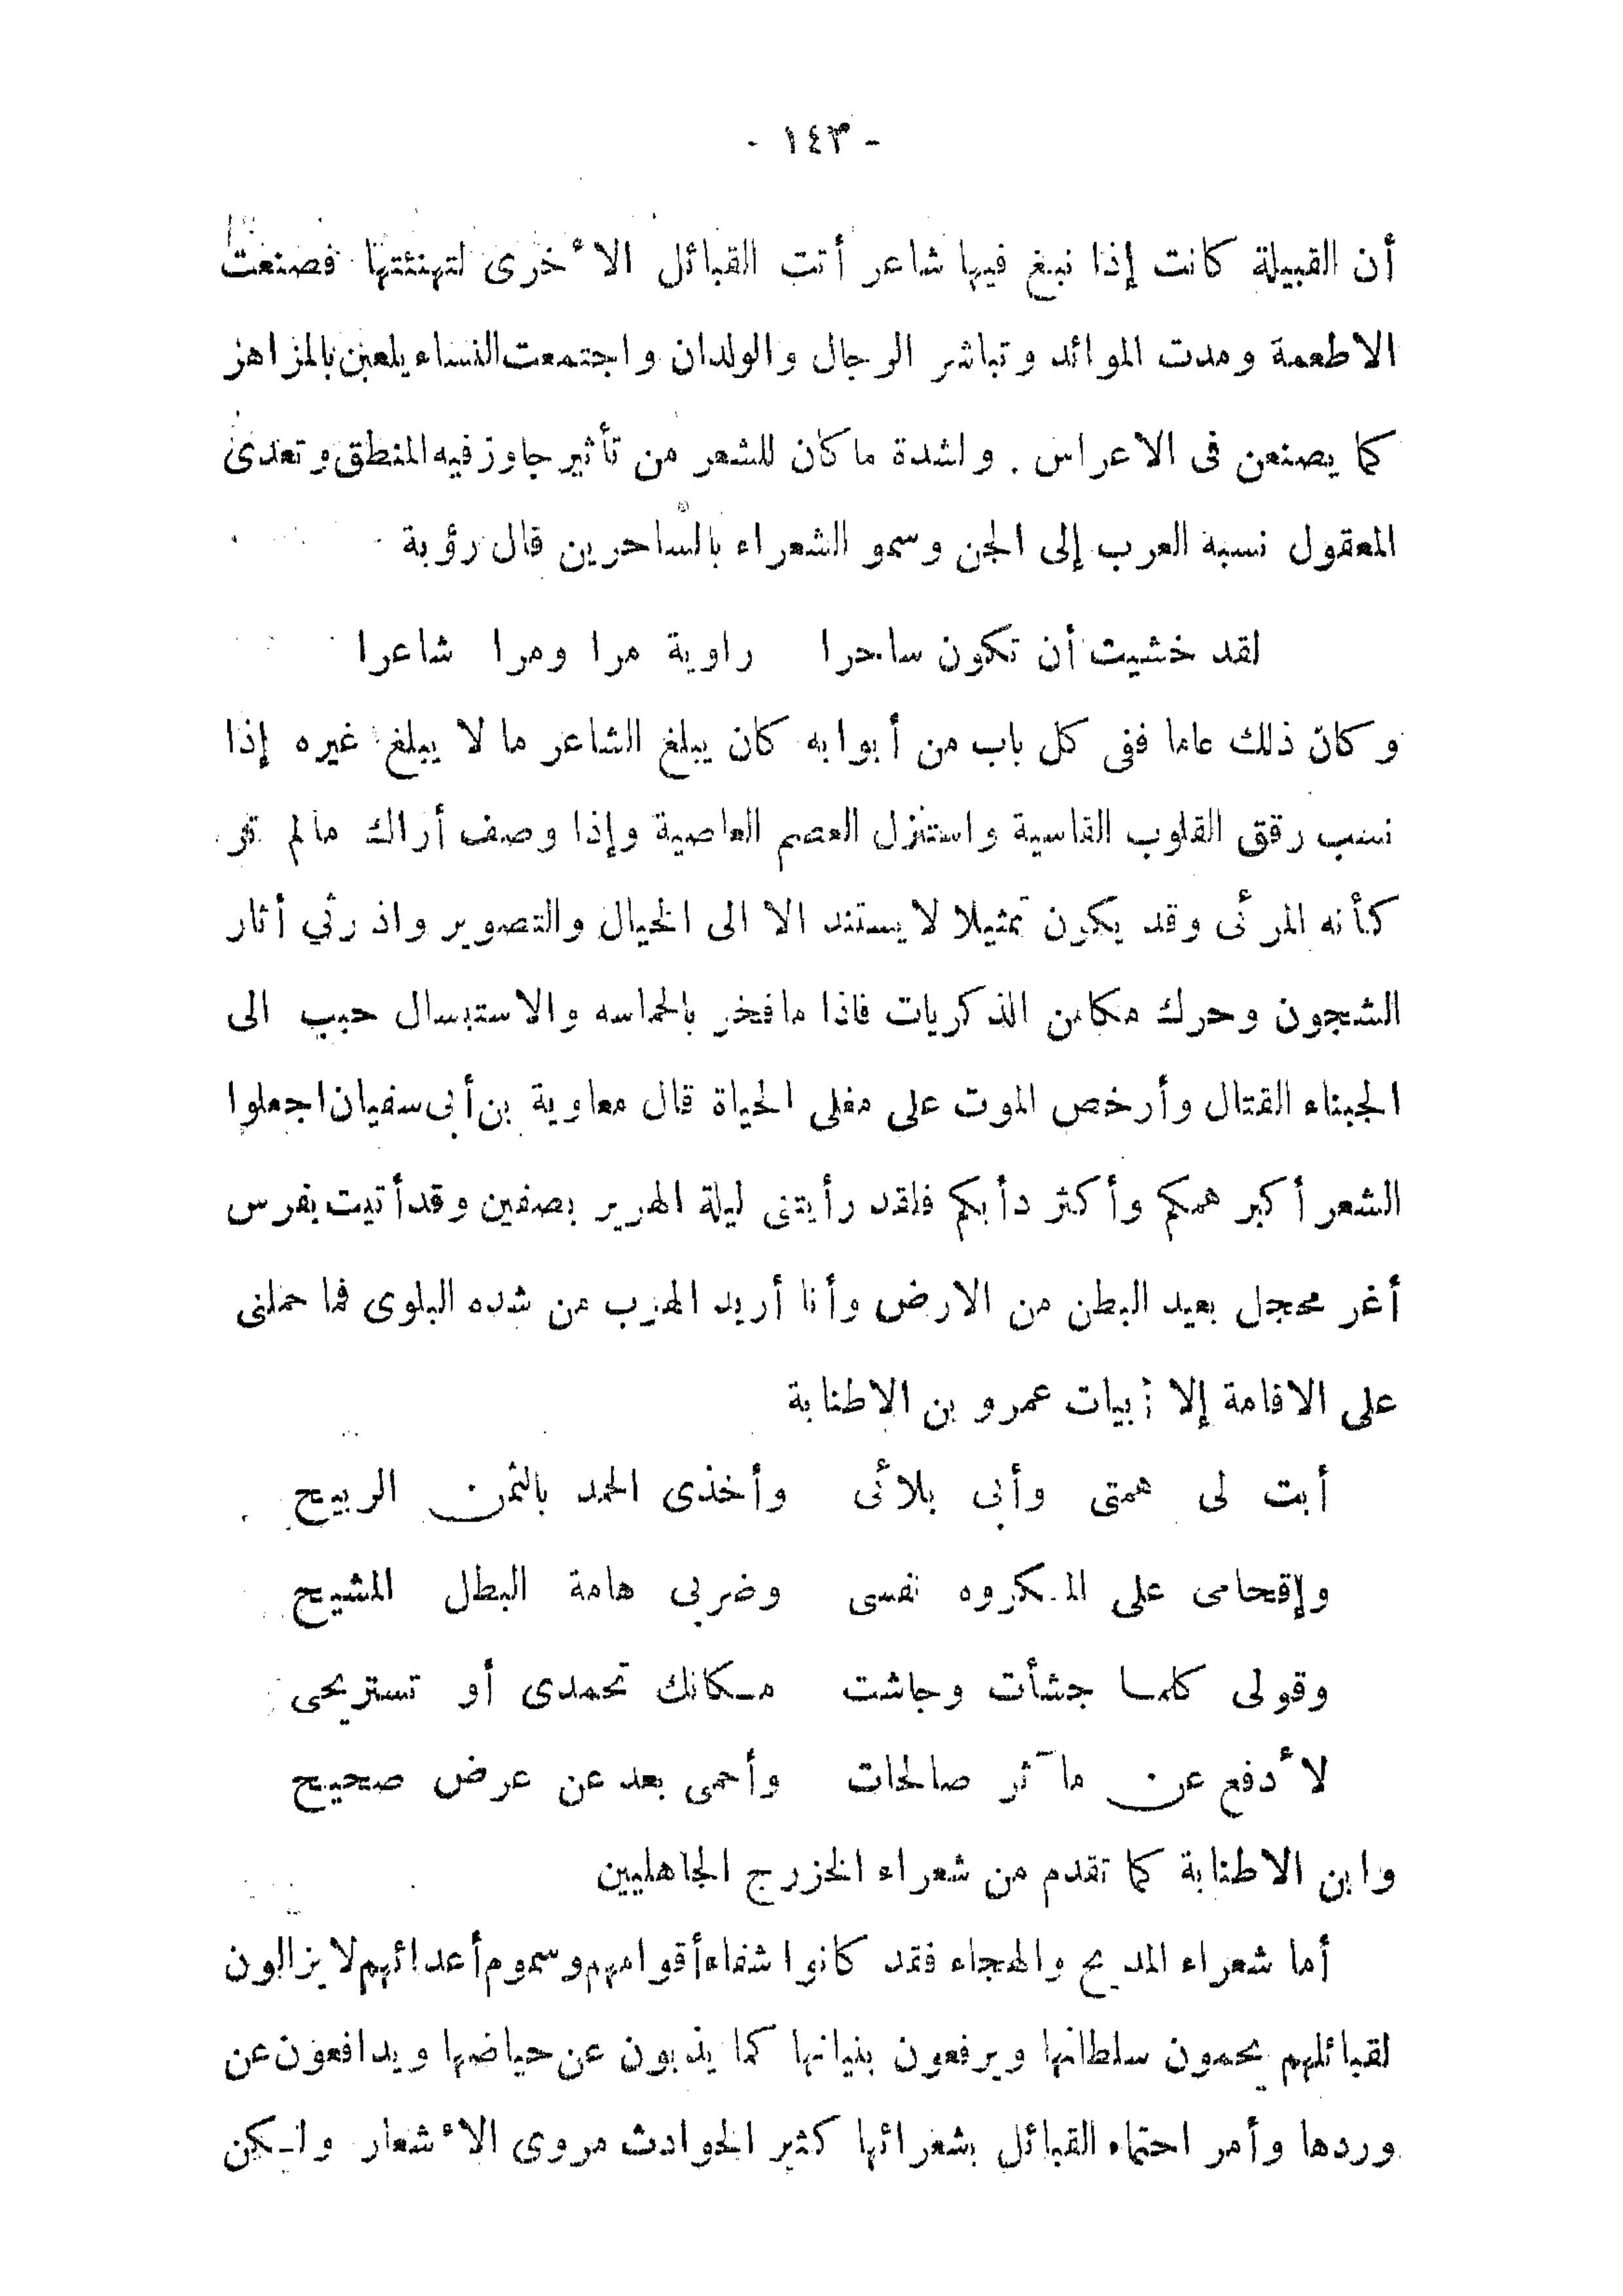 - ١٤٣ -
أن القبيلة كانت إذا نبغ فيها شاعر أتت القبائل الأخرى لتهنئتها فصنعت
الاطعمة ومدت الموائد وتباشر الرجال والولدان واجتمعت النساء يلعبن بالمزاهر
كما يصنعن فى الاعراس . ولشدة ما كان للشعر من تأثير جاوز فيه المنطق وتعدى
المعقول نسبة العرب إلى الجن وسمو الشعراء بالساحرين قال رؤبة
لقد خشيت أن تكون ساحرا راوية مرا ومرا شاعرا
وكان ذلك عاما ففى كل باب من أبوابه كان يبلغ الشاعر ما لا يبلغ غيره إذا
نسب رقق القلوب القاسية واستنزل العصم العاصية وإذا وصف أراك مالم تر
كأنه المرئى وقد يكون تمثيلا لا يستند الا الى الخيال والتصوير واذ رثي أثار
الشجون وحرك مكامن الذكريات فاذا ما فخر بالحماسه والاستبسال حبب الى
الجبناء القتال وأرخص الموت على مغلى الحياة قال معاوية بن أبى سفيان اجعلوا
الشعر أكبر همكم وأكثر دأبكم فلقد رأيتنى ليلة الهرير بصفين وقد أتيت بفرس
أغر محجل بعيد البطن من الارض وأنا أريد الهرب من شده البلوى فما حملنى
على الاقامة إلا أبيات عمرو بن الاطنابة
أبت لى همتى وأبى بلائى وأخذى الحمد بالثمن الربيح
وإقحامى على المكروه نفسى وضربى هامة البطل المشيح
وقولى كلما جشأت وجاشت مكانك تحمدى أو تستريحى
لأدفع عن مآثر صالحات وأحمى بعد عن عرض صحيح
وابن الاطنابة كما تقدم من شعراء الخزرج الجاهليين
أما شعراء المديح والهجاء فقد كانوا شفاء أقوامهم وسموم أعدائهم لا يزالون
لقبائلهم يحمون سلطانها ويرفعون بنيانها كما يذبون عن حياضها ويدافعون عن
وردها وأمر احتماء القبائل بشعرائها كثير الحوادث مروى الأشعار ولكن